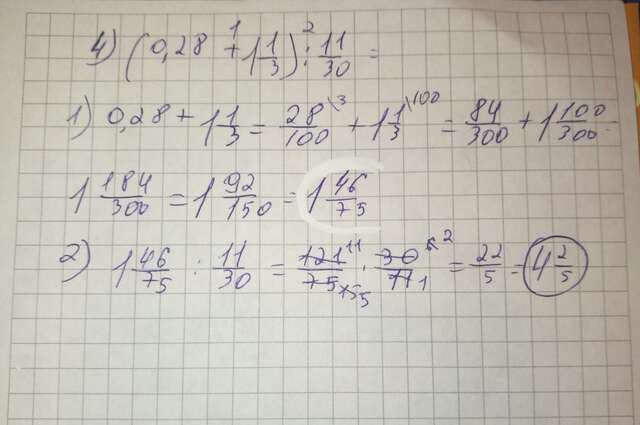 4) (0,28 + 1 1/3) : 11/30 =
1 2
1) 0,28 + 1 1/3 = 28/100 \3 + 1 1/3 \100 = 84/300 + 1 100/300 =
1 184/300 = 1 92/150 = 1 46/75
2) 1 46/75 : 11/30 = 121/75 11 15 5 · 30/11 6 2 1 = 22/5 = 4 2/5